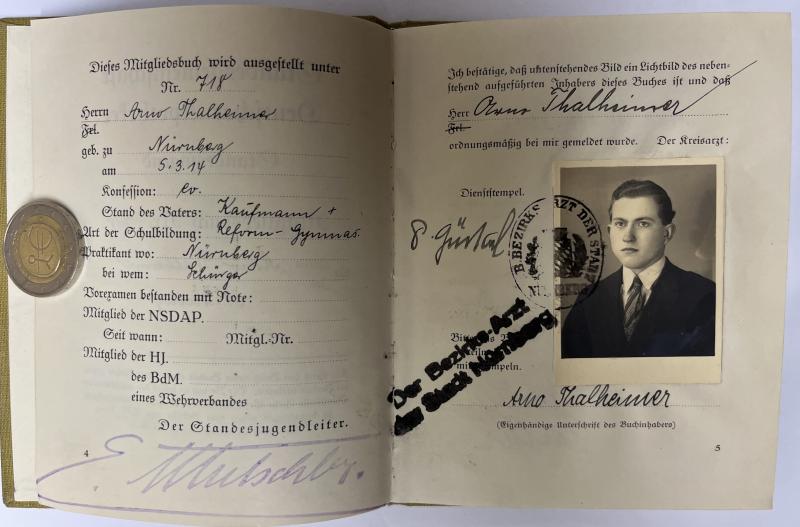 Dieses Mitgliedsbuch wird ausgestellt unter
Nr. 718
Herrn Arno Thalheimer
Frl.
geb. zu Nürnberg
am 5.3.14
Konfession: ev.
Stand des Vaters: Kaufmann +
Art der Schulbildung: Reform-Gymnas.
Praktikant wo: Nürnberg
bei wem:
Vorexamen bestanden mit Note:
Mitglied der NSDAP.
Seit wann: Mitgl.-Nr.
Mitglied der HJ.
des BdM.
eines Wehrverbandes
Der Standesjugendleiter.
4
Ich bestätige, daß untenstehendes Bild ein Lichtbild des neben-
stehend aufgeführten Inhabers dieses Buches ist und daß
Herr Arno Thalheimer
Frl.
ordnungsmäßig bei mir gemeldet wurde. Der Kreisarzt:
Dienststempel.
BEZIRKSARZT DER STADT
NÜRNBERG
Der Bezirks-Arzt
der Stadt Nürnberg
Arno Thalheimer
(Eigenhändige Unterschrift des Buchinhabers)
5